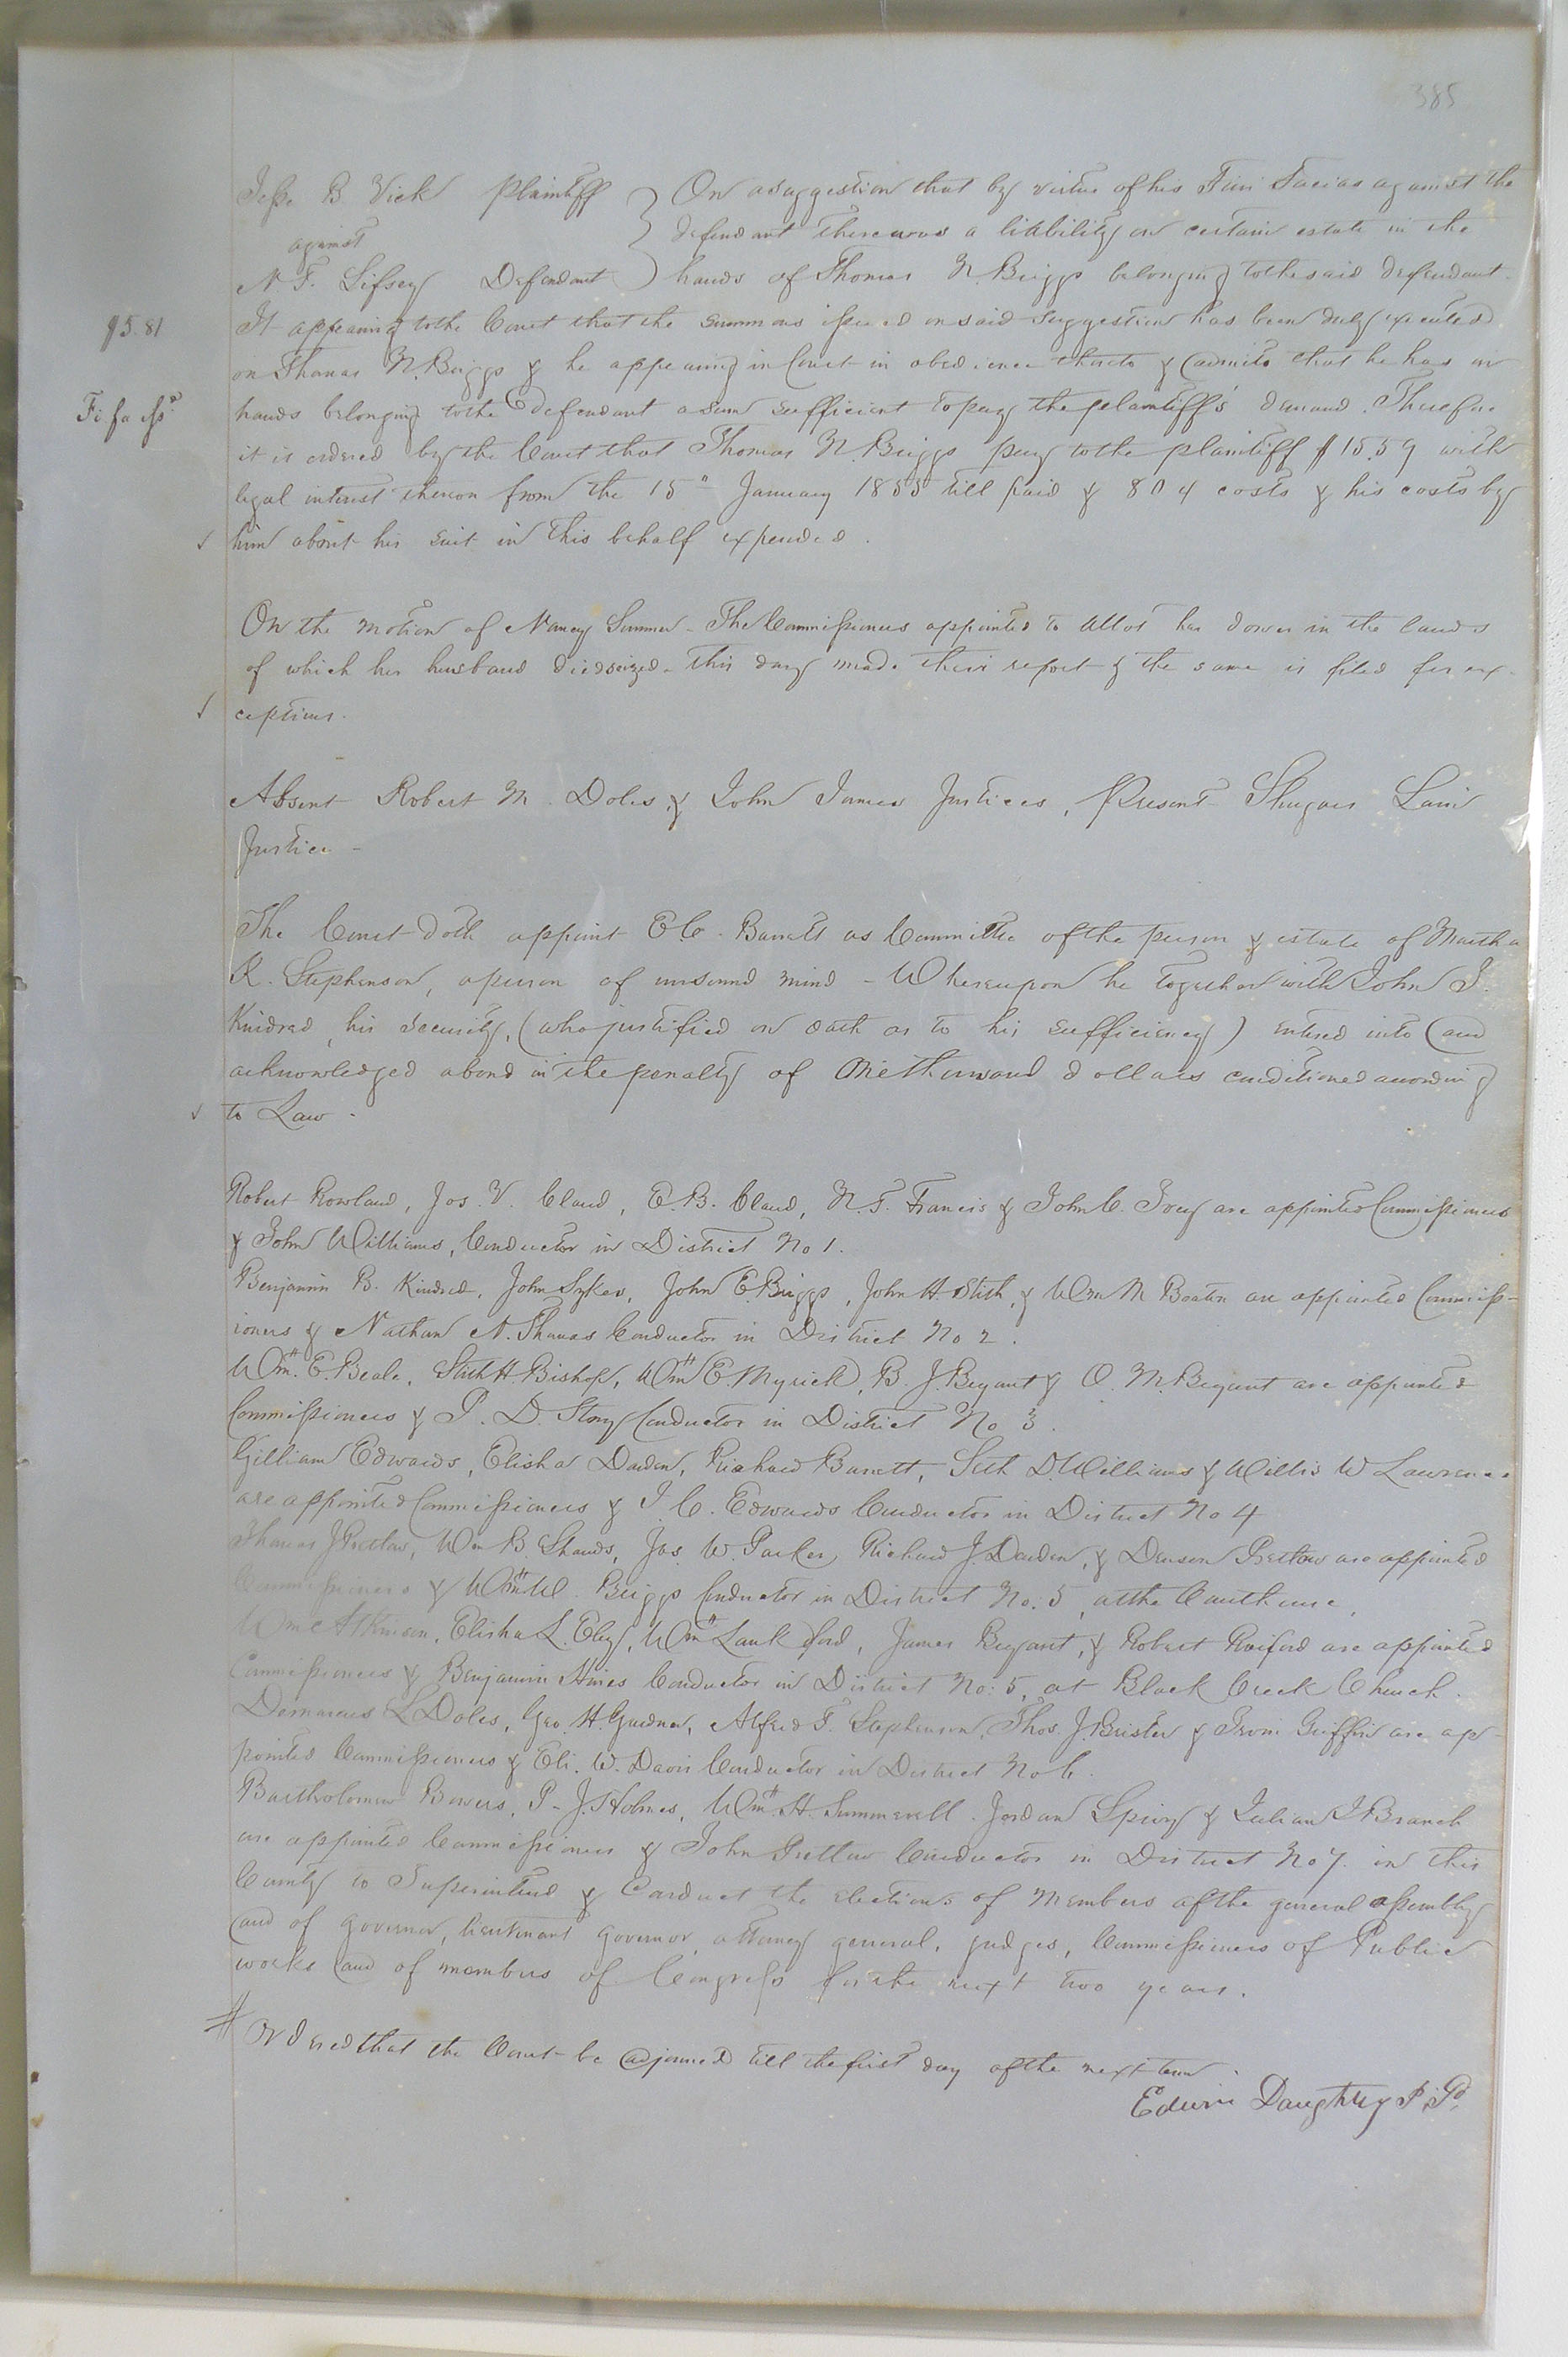 385
Jesse B Vick Plaintiff } On a suggestion that by virtue of his Fieri Facias against the
against } defendant there was a liability on certain estate in the
N. F. Lifsey Defendant } hands of Thomas N. Briggs belonging to the said defendant.
$5.81
It appearing to the Court that the summons issued on said suggestion has been duly executed
on Thomas N. Briggs & he appearing in Court in obedience thereto & admits that he has in
Fi fa issd
hands belonging to the defendant a sum sufficient to pay the plaintiff's demand. Therefore
it is ordered by the Court that Thomas N. Briggs pay to the plaintiff $15.59 with
legal interest thereon from the 15" January 1855 till paid & 804 costs & his costs by
him about his suit in this behalf expended.
On the motion of Nancy Sumner - The Commissioners appointed to allot her dower in the lands
of which her husband died seized - this day made their report & the same is filed for ex-
ceptions.
Absent Robert M. Doles & John James Justices, Present Shugars Lain
Justice -
The Court doth appoint E. C. Barrett as Committee of the person & estate of Martha
R. Stephenson, a person of unsound mind - Whereupon he together with John J.
Kindred, his security, (who justified on oath as to his sufficiency) entered into and
acknowledged a bond in the penalty of One thousand dollars conditioned according
to Law -
Robert Rowland, Jos. V. Claud, E. B. Claud, N. T. Francis & John C. Ivey are appointed Commissioners
& John Williams, Conductor in District No 1.
Benjamin B. Kindred, John Sykes, John E. Briggs, John H. Stith, & Wm N Boaten are appointed Commiss-
ioners & Nathan N. Shands Conductor in District No 2.
Wm. E. Beale, Stith H. Bishop, Wm E. Myrick, B. J. Bryant & O. M. Bryant are appointed
Commissioners & P. D. Story Conductor in District No 3.
Gilliam Edwards, Elisha Darden, Richard Barrett, Seth D. Williams & Willis W Lawrence
are appointed Commissioners & J. C. Edwards Conductor in District No 4
Thomas J Pretlow, Wm B. Shands, Jas. W. Parker, Richard J. Darden, & Denson Pretlow are appointed
Commissioners & Wm W. Briggs Conductor in District No: 5, at the Courthouse,
Wm Atkinson, Elisha L. Eley, Wm Lankford, James Bryant, & Robert Raiford are appointed
Commissioners & Benjamin Hines Conductor in District No: 5, at Black Creek Church.
Demarcus L Doles, Geo. H. Gardner, Alfred F. Stephenson, Thos. J. Brister & Irvin Griffin are ap-
pointed Commissioners & Eli. W. Davis Conductor in District No 6.
Bartholomew Bowers, P. J. Holmes, Wm. H. Summerell. Jordan Spivey & Julian J Branch
are appointed Commissioners & John Pretlow Conductor in District No 7. in this
County to Superintend & Conduct the elections of members of the general assembly
and of governor, lieutenant governor, attorney general, judges, Commissioners of Public
works and of members of Congress for the next two years.
Ordered that the Court be adjourned till the first day of the next term.
Edwin Daughtry P. P.